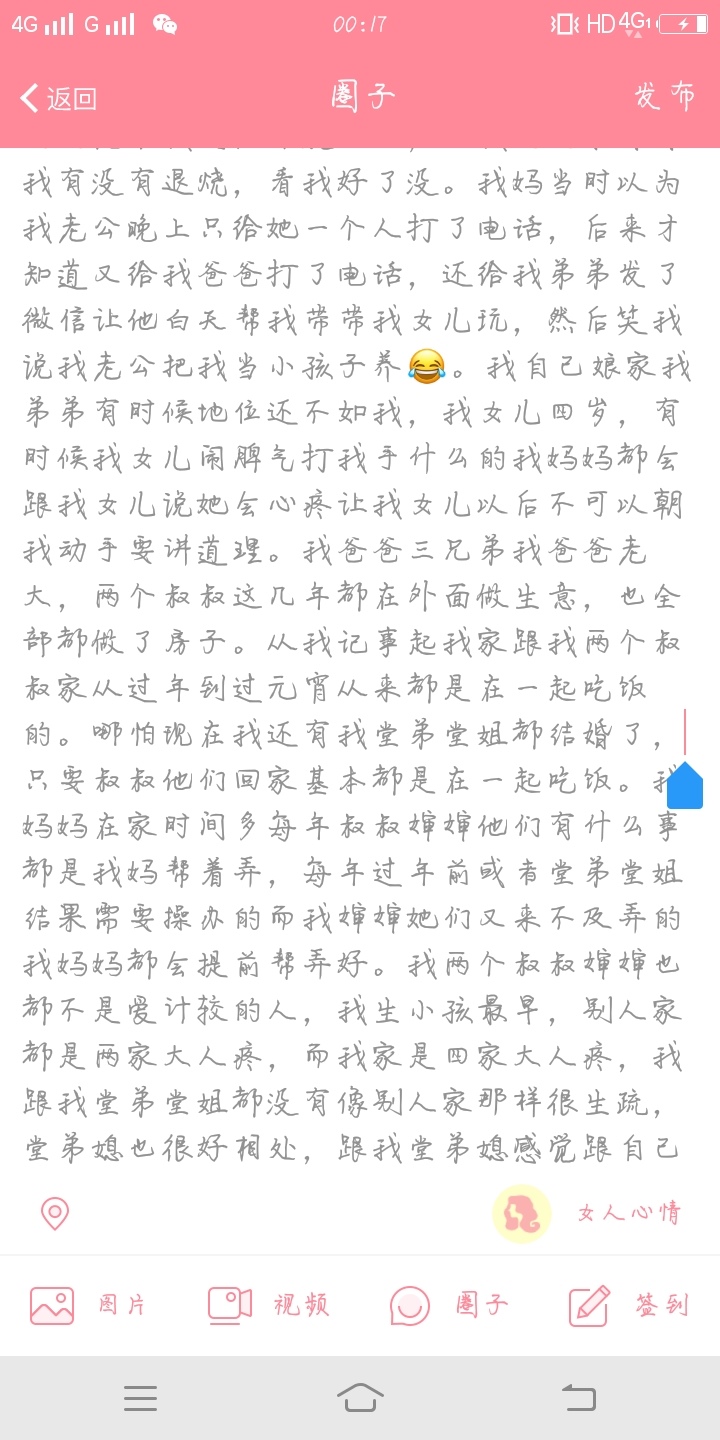 4G G 00:17 HD 4G
返回 圈子 发布
我有没有退烧，看我好了没。我妈当时以为
我老公晚上只给她一个人打了电话，后来才
知道又给我爸爸打了电话，还给我弟弟发了
微信让他白天帮我带带我女儿玩，然后笑我
说我老公把我当小孩子养😂。我自己娘家我
弟弟有时候地位还不如我，我女儿四岁，有
时候我女儿闹脾气打我手什么的我妈妈都会
跟我女儿说她会心疼让我女儿以后不可以朝
我动手要讲道理。我爸爸三兄弟我爸爸老
大，两个叔叔这几年都在外面做生意，也全
部都做了房子。从我记事起我家跟我两个叔
叔家从过年到过元宵从来都是在一起吃饭
的。哪怕现在我还有我堂弟堂姐都结婚了，
只要叔叔他们回家基本都是在一起吃饭。我
妈妈在家时间多每年叔叔婶婶他们有什么事
都是我妈帮着弄，每年过年前或者堂弟堂姐
结果需要操办的而我婶婶她们又来不及弄的
我妈妈都会提前帮弄好。我两个叔叔婶婶也
都不是爱计较的人，我生小孩最早，别人家
都是两家大人疼，而我家是四家大人疼，我
跟我堂弟堂姐都没有像别人家那样很生疏，
堂弟媳也很好相处，跟我堂弟媳感觉跟自己
女人心情
图片 视频 圈子 签到